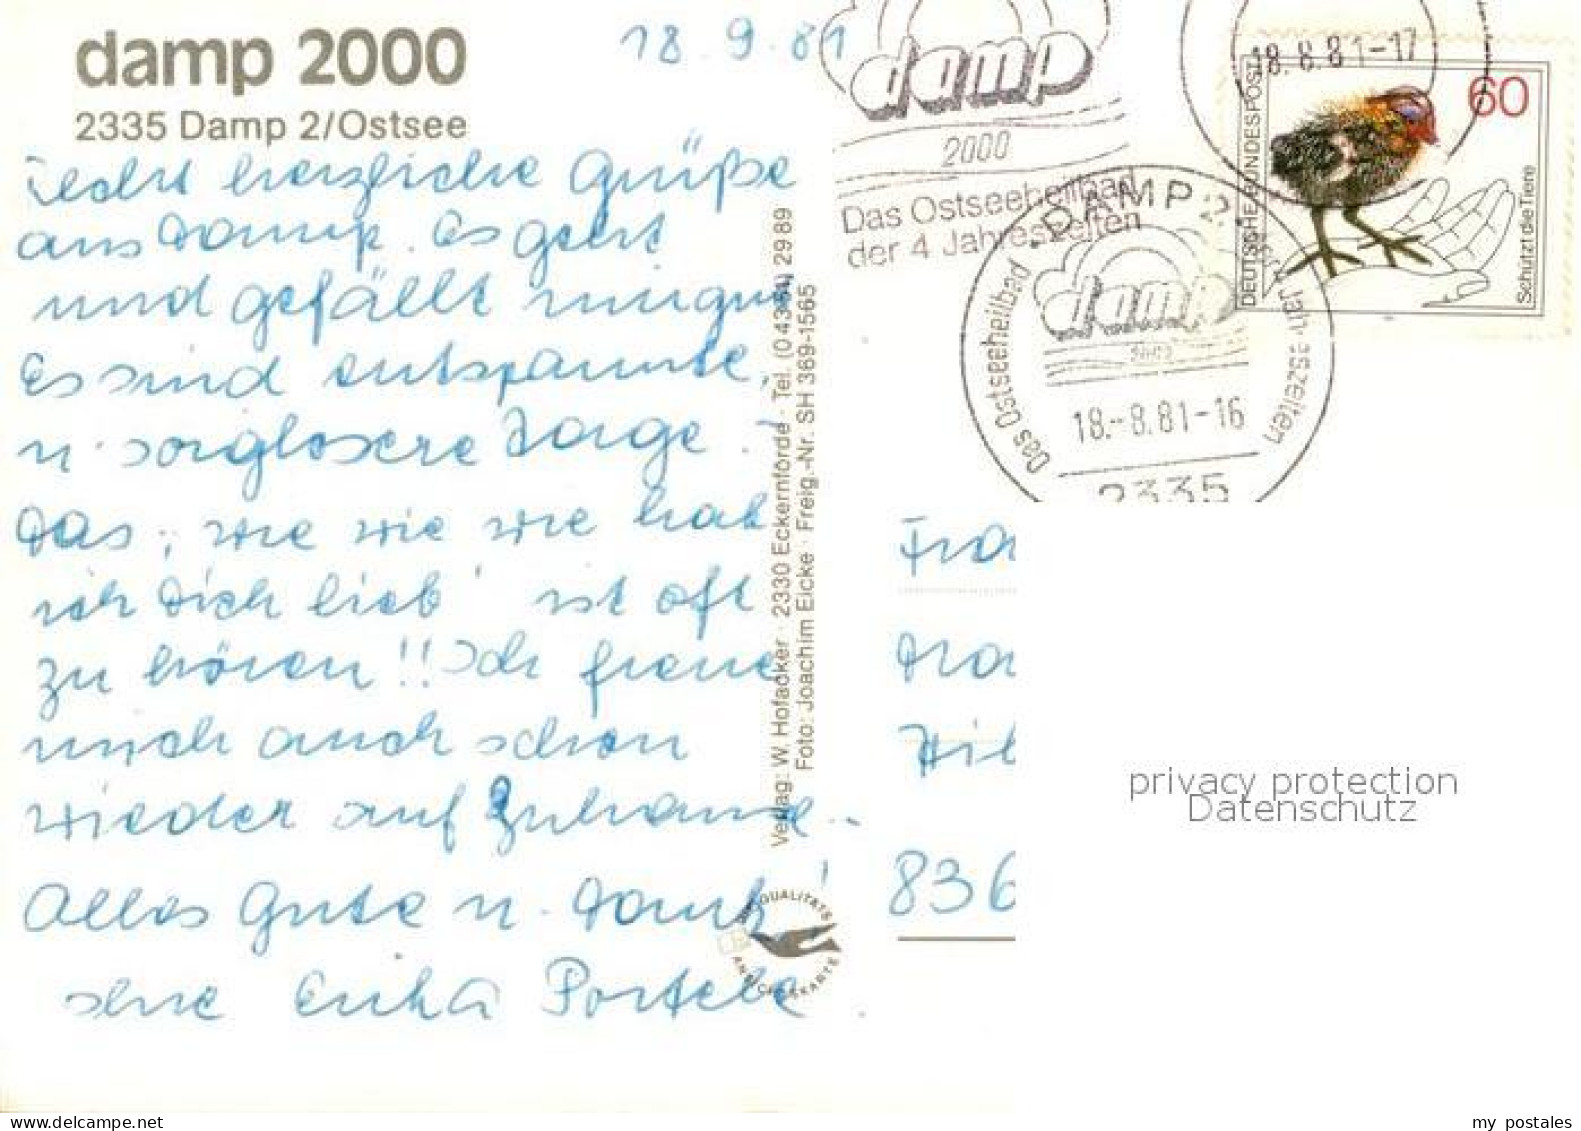 damp 2000
2335 Damp 2/Ostsee
18.9.81
Recht herzliche Grüße
aus Damp. Es geht
und gefällt
Es sind entspannte,
u. sorglosere Tage.
Das, wie wie wie hab
ich Dich lieb' ist oft
zu hören!! Ich freue
mich auch schon
wieder auf Zuhause.
Alles Gute u. Dank!
Ihre Erika
Verlag: W. Hofacker · 2330 Eckernförde · Tel. (04351) 2989
Foto: Joachim Eicke · Freig.-Nr. SH 369-1565
QUALITÄTS
ANSICHTSKARTE
damp
2000
Das Ostseeheilbad
der 4 Jahreszeiten
18.8.81-17
DAMP 2
Das Ostseeheilbad der 4 Jahreszeiten
damp
2000
18.-8.81-16
2335
60
DEUTSCHE BUNDESPOST
Schützt die Tiere
Hil
836
privacy protection
Datenschutz
my postales